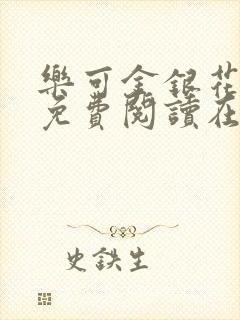 樂可金銀花
免費閱讀在
史鉄生